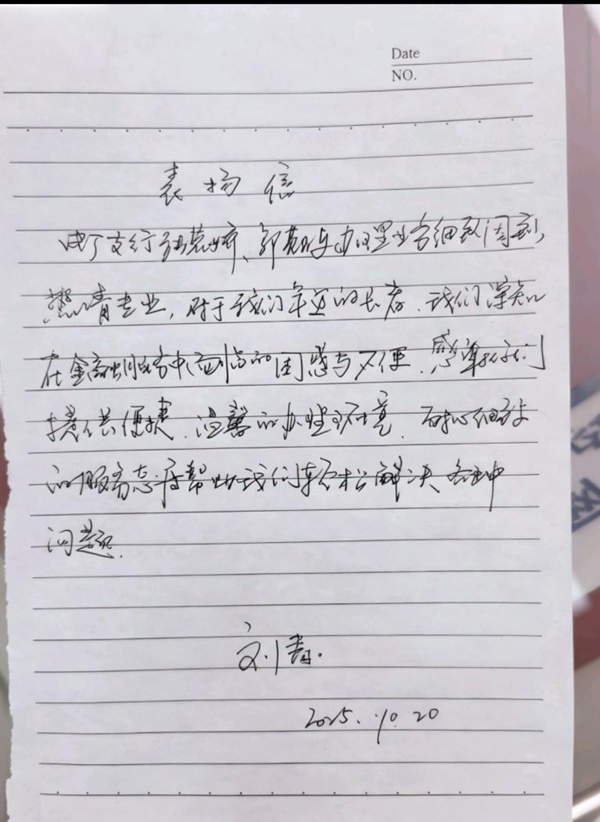 Date
NO.
表扬信
支行 办理业务细致周到,
热情专业,对于我们年迈的长者,我们深知
在金融服务中面临的困惑与不便,感谢你们
提供便捷、温馨的办理环境,耐心细致
的服务态度帮助我们轻松解决各种
问题.
刘
2025.10.20